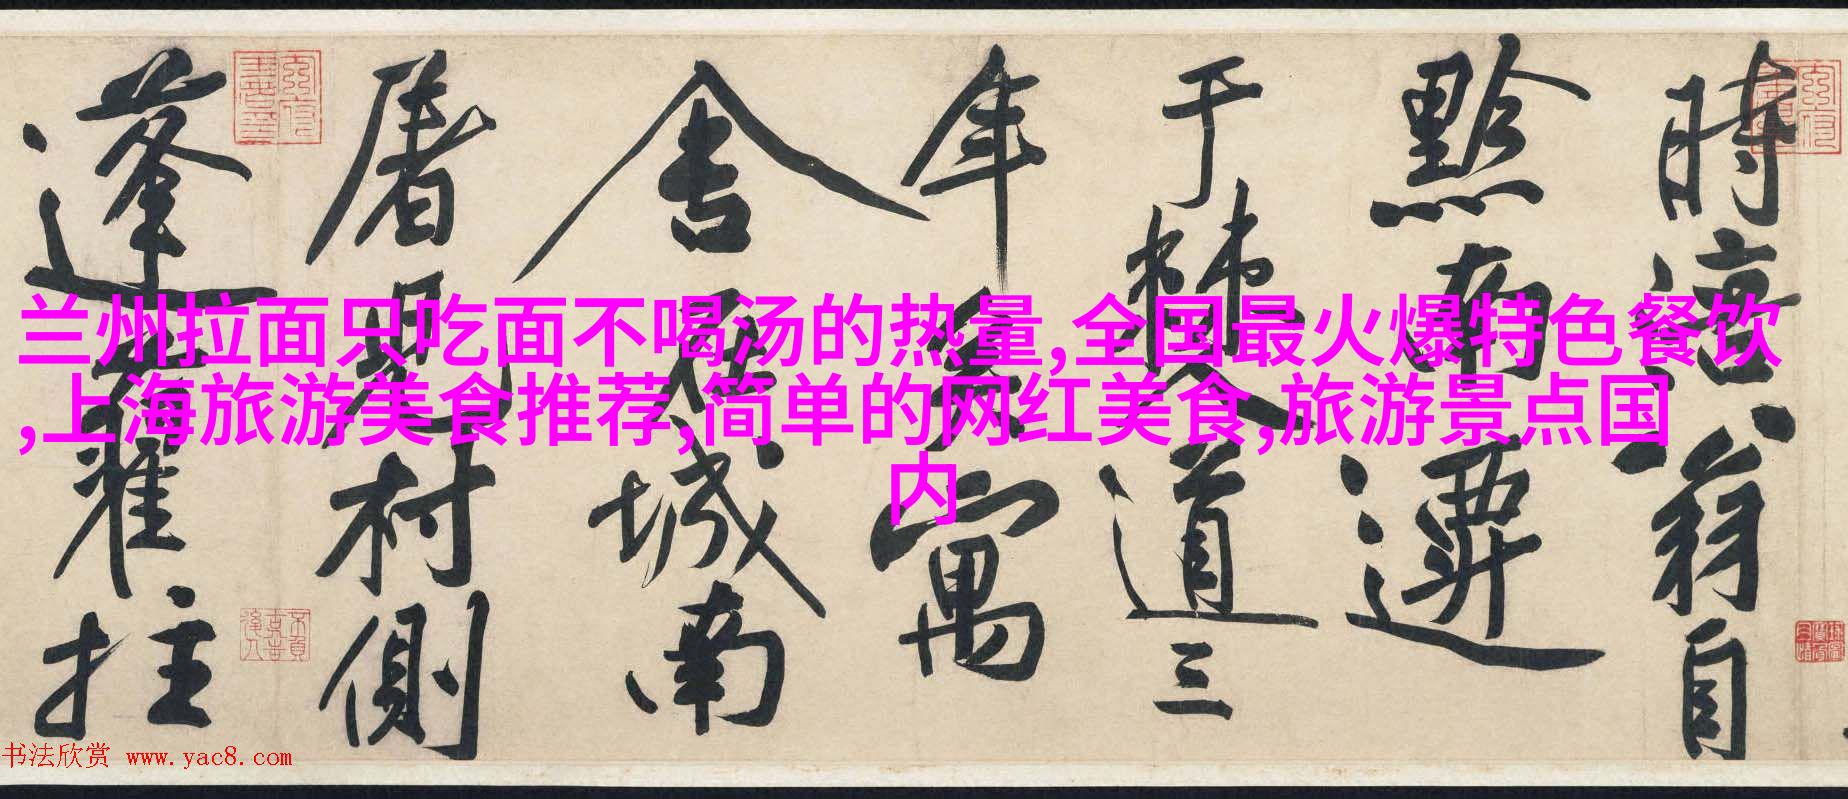 時涪翁自
黔南遷
于僰道三
年矣寓
舍在城南
屠兒村側
蓬藋拄
兰州拉面只吃面不喝汤的热量,全国最火爆特色餐饮
,上海旅游美食推荐,简单的网红美食,旅游景点国
内
书法欣赏 www.yac8.com